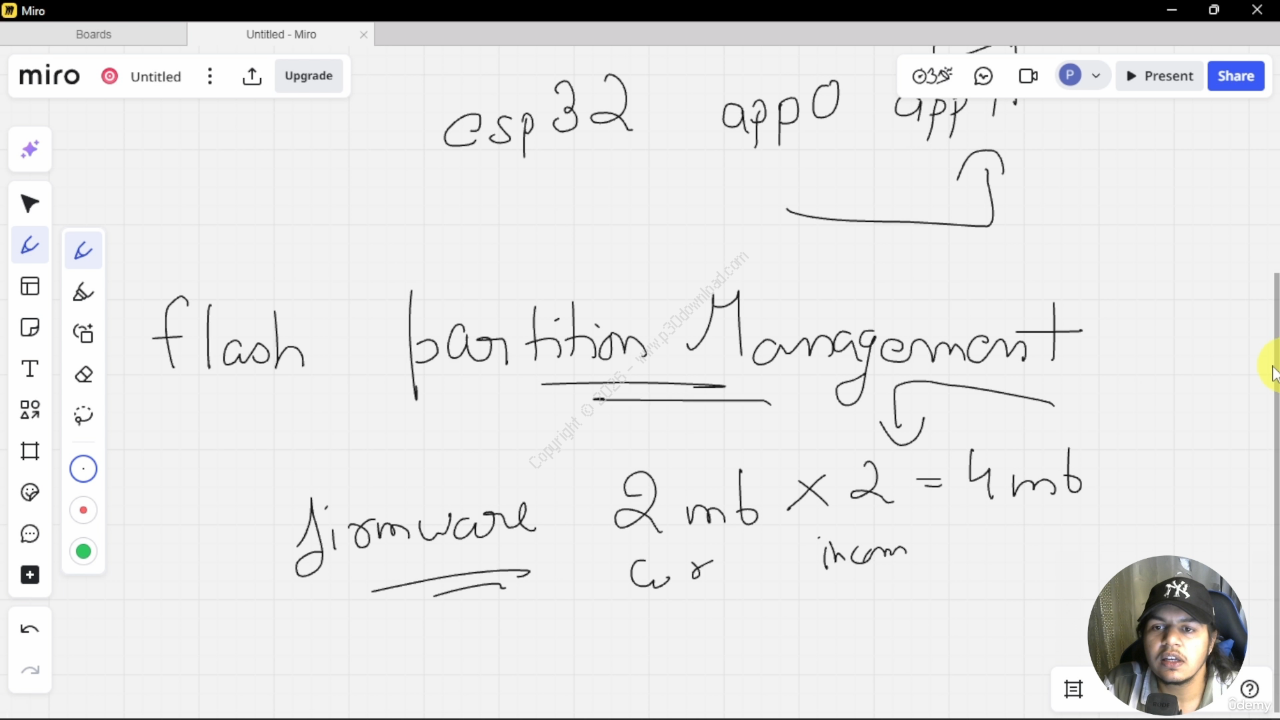 Miro
Boards
Untitled - Miro
miro
Untitled
Upgrade
P
Present
Share
esp32 app0 app1
flash partition Management
Copyright © 2026 - www.p30download.com
firmware 2 mb × 2 = 4 mb
Cur incom
T
NY
?
ûdemy